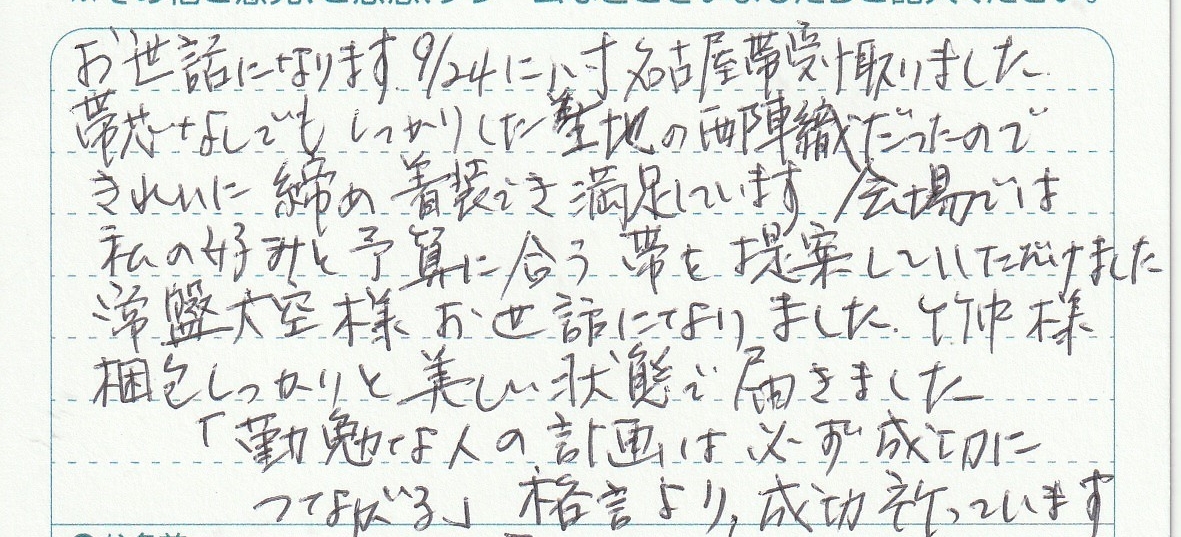 お世話になります。9/24に八寸名古屋帯受け取りました
帯芯なしでもしっかりした生地の西陣織だったので
きれいに締め着装でき満足しています。会場では
私の好みと予算に合う帯を提案していただけました
常盤大空様 お世話になりました。竹中様
梱包しっかりと美しい状態で届きました
「勤勉な人の計画は必ず成功に
つながる」格言より,成功祈っています